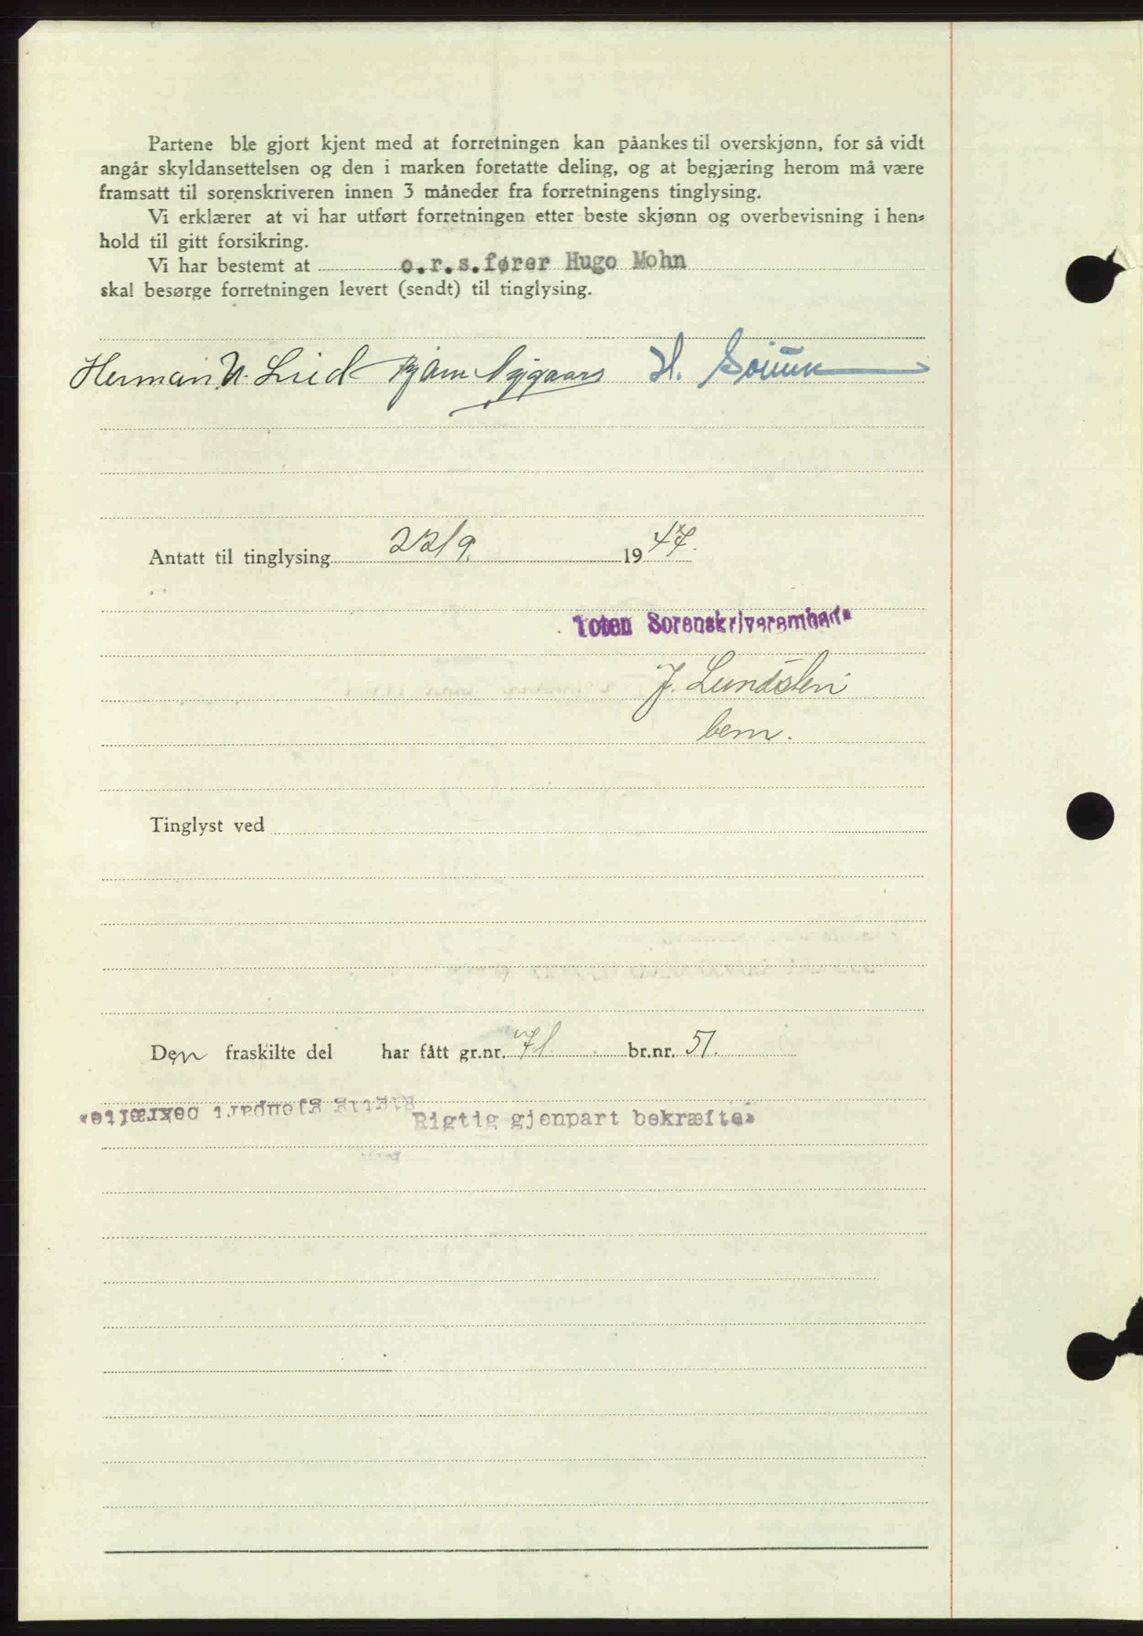 Partene ble gjort kjent med at forretningen kan påankes til overskjønn, for så vidt
angår skyldansettelsen og den i marken foretatte deling, og at begjæring herom må være
framsatt til sorenskriveren innen 3 måneder fra forretningens tinglysing.
Vi erklærer at vi har utført forretningen etter beste skjønn og overbevisning i hen-
hold til gitt forsikring.
Vi har bestemt at o.r.s.fører Hugo Mohn
skal besørge forretningen levert (sendt) til tinglysing.
Herman N. Lund Bjarne Nygaard H.
Antatt til tinglysing 22/9 1947.
Toten Sorenskriverembede
J. Lundsten
bem.
Tinglyst ved
Den fraskilte del har fått gr.nr. 71 br.nr. 51.
Rigtig gjenpart bekræftes
Rigtig gjenpart bekræftes